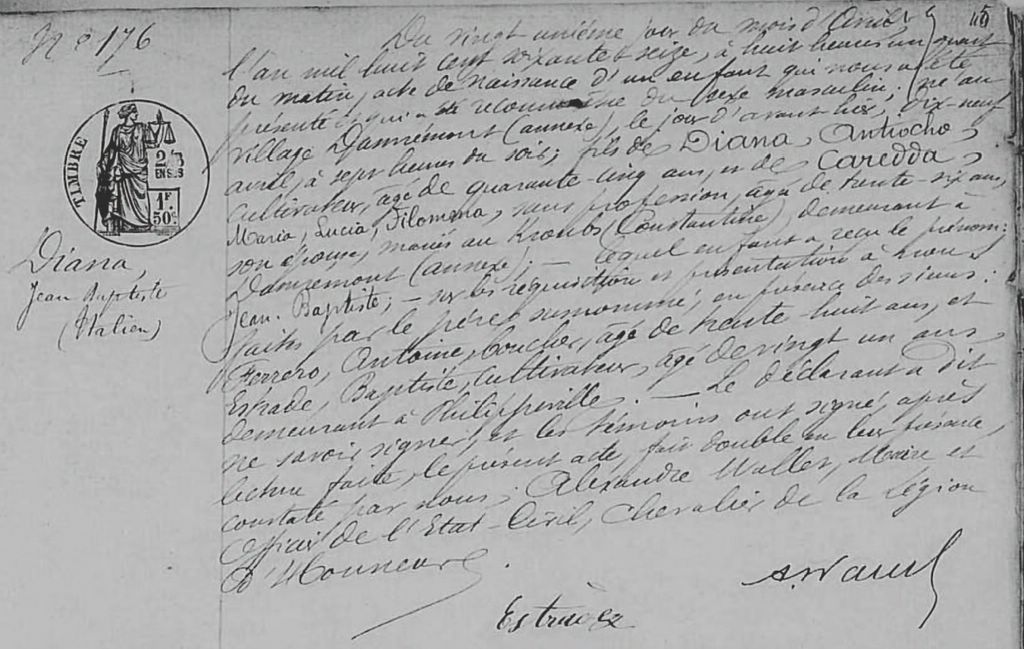 N° 176
45
Du vingt unième jour du mois d'Avril
l'an mil huit cent soixante et seize, à huit heures un quart
du matin, acte de naissance d'un enfant qui nous a été
présenté et qui a été reconnu être du sexe masculin; né au
village Damrémont (annexe), le jour d'avant hier, dix-neuf
avril, à sept heures du soir; fils de Diana, Antiocho,
cultivateur, âgé de quarante-cinq ans, et de Caredda,
Maria, Lucia, Filomena, sans profession, âgée de trente-six ans,
son épouse, mariés au Kroubs (Constantine), demeurant à
Damremont (annexe); — lequel enfant a reçu le prénom:
Jean-Baptiste; — sur les réquisition et présentation à nous
faites par le père susnommé, en présence des sieurs:
Ferrero, Antoine, boucher, âgé de trente-huit ans, et
Estrade, Baptiste, cultivateur, âgé de vingt un ans,
demeurant à Philippeville. — Le déclarant a dit
ne savoir signer, et les témoins ont signé, après
lecture faite, le présent acte, fait double en leur présence,
constaté par nous, Alexandre Wallet, Maire et
Officier de l'Etat-Civil, Chevalier de la Légion
d'Honneur.
TIMBRE
2/10
EN SUS
1F.
50c
Diana,
Jean Baptiste
(Italien)